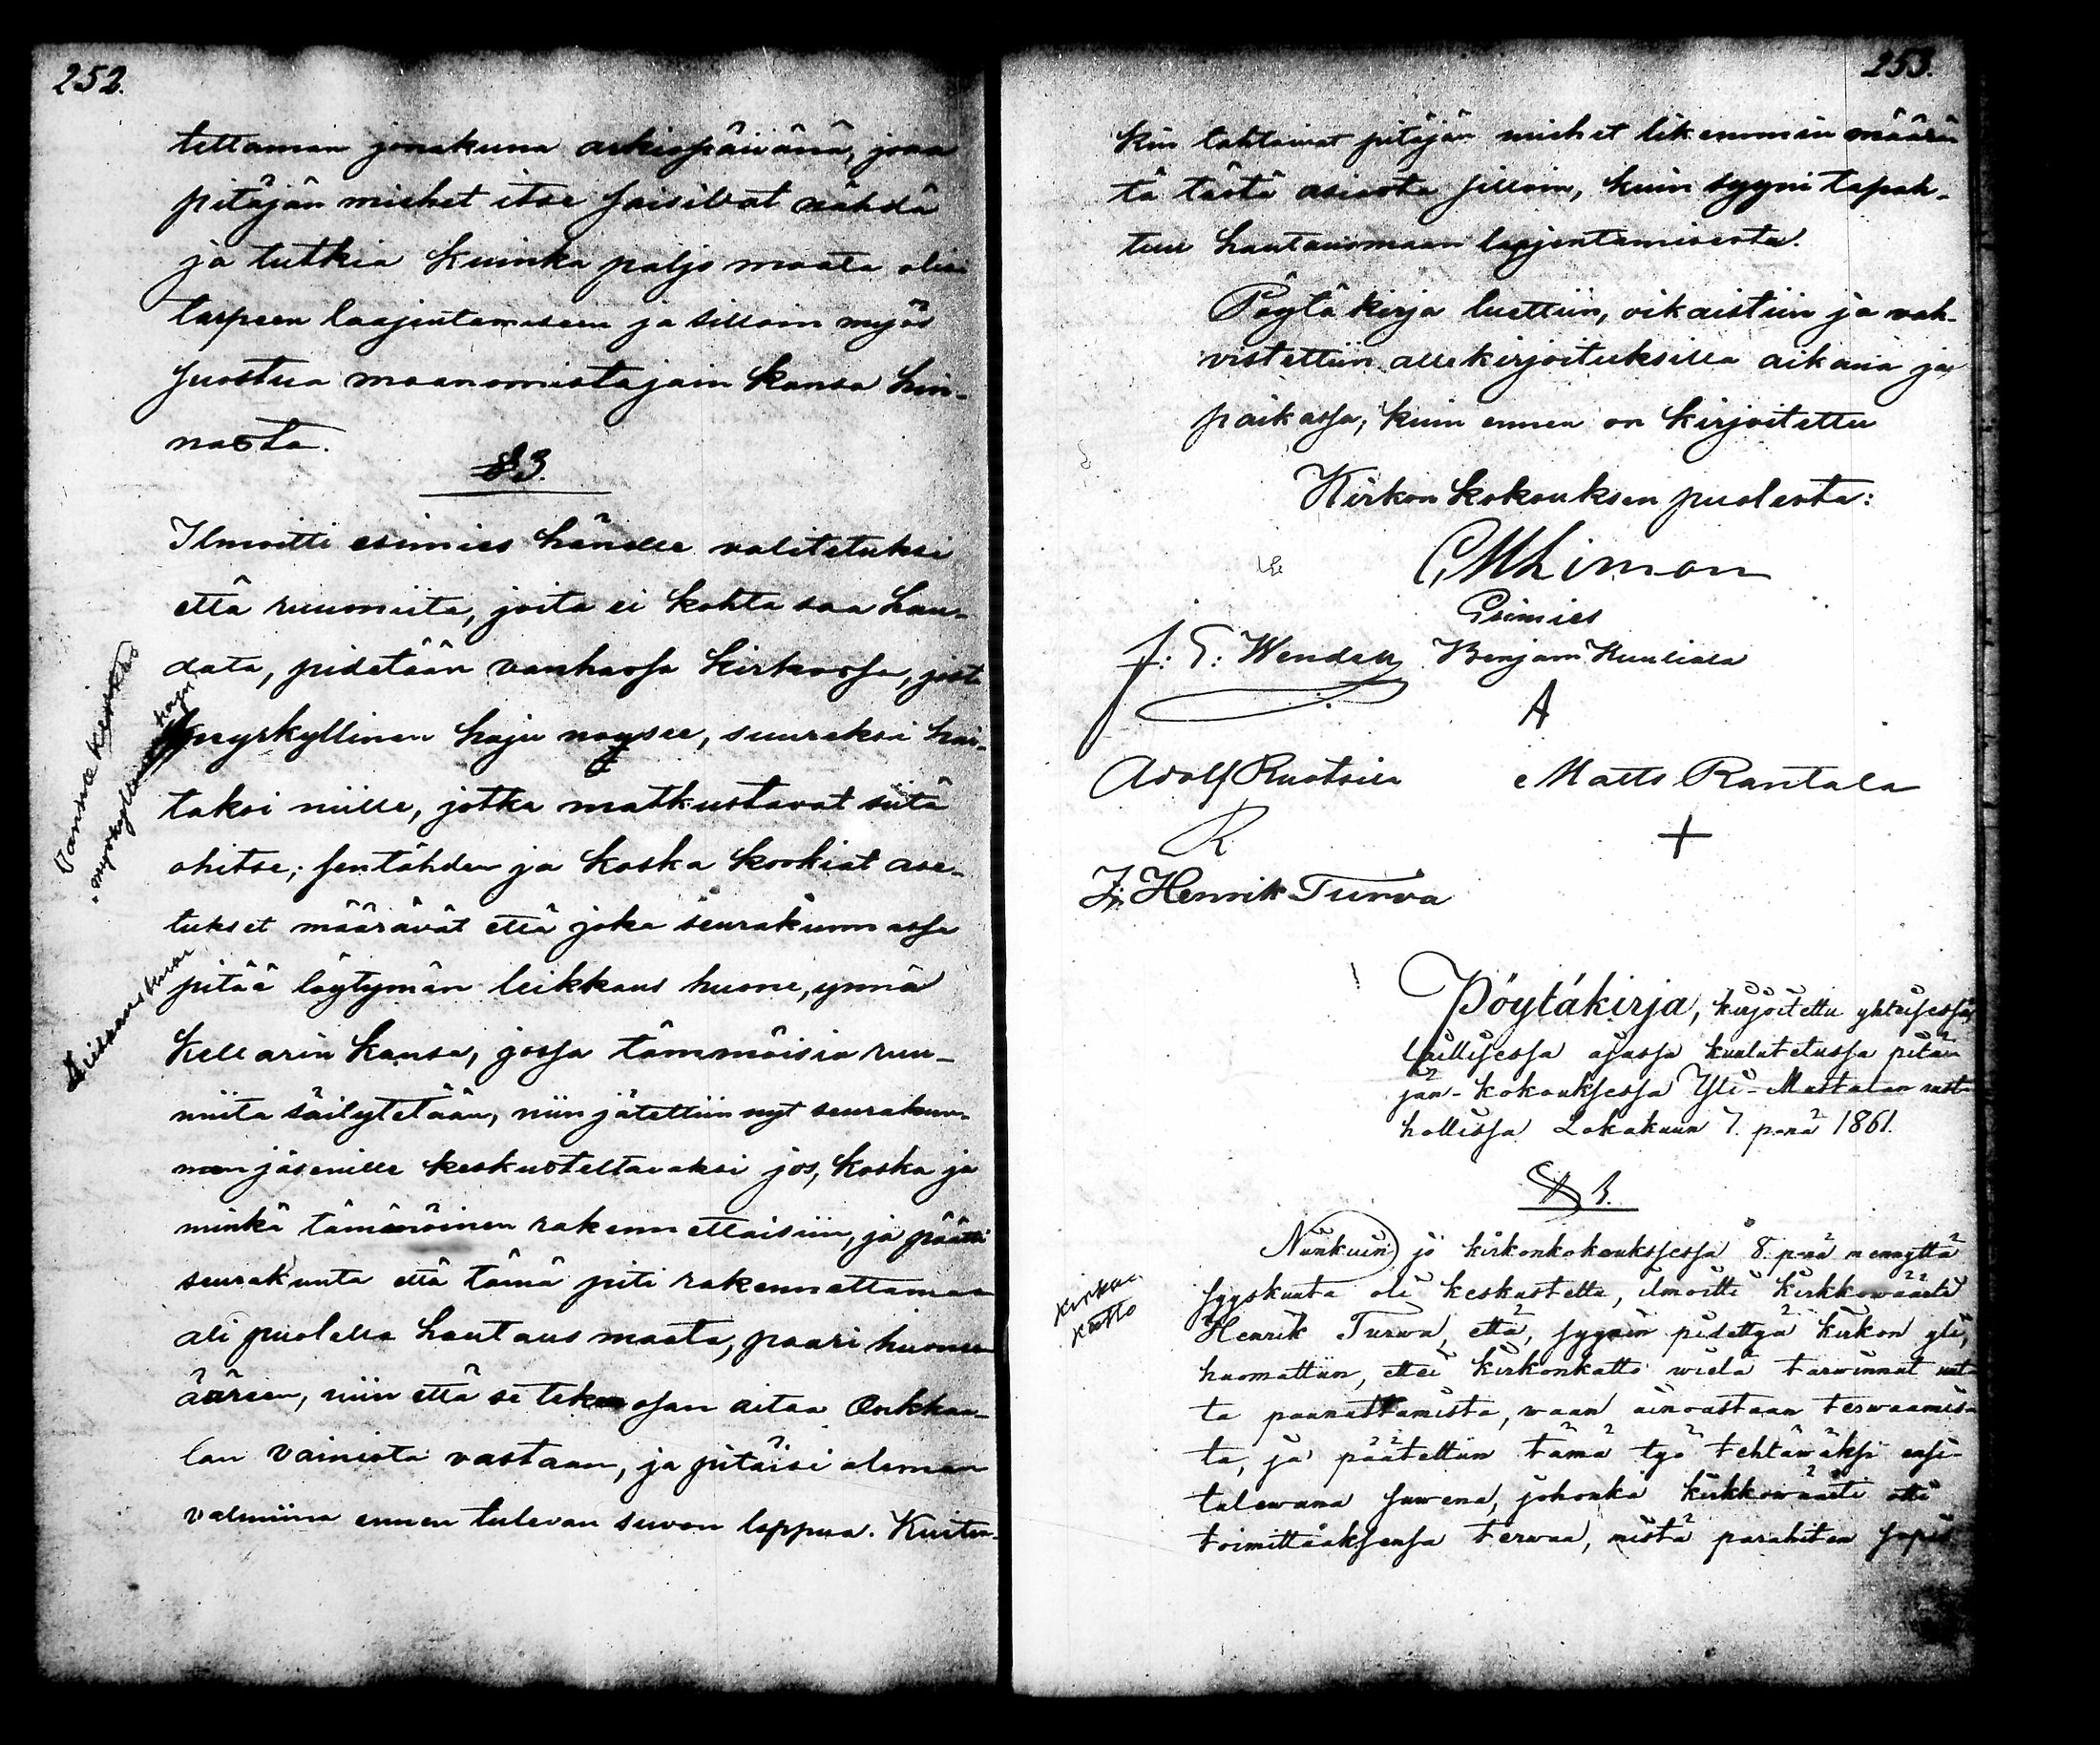 252.
tettaman jonakuna arkiopäivänä, josa
pitäjän miehet itse saisivat nähdä
ja tutkia kuinka paljo maata olisi
tarpeen laajentamiseen ja silloin myös
suostua maanomistajain kansa hin-
nasta.
§ 3.
Ilmoitti esimies hänelle valitetuksi
että ruumiita, joita ei kohta saa hau-
data, pidetään vanhassa kirkossa, josta
myrkyllinen haju nousee, suureksi hai-
taksi niille, jotka matkustavat siitä
ohitse; sentähden ja koska korkiat ase-
tukset määrävät että joka seurakunnassa
pitää löytymän leikkaus huone, ynnä
kellarin kansa, jossa tämmöisia ruu-
miita säilytetään, niin jätettiin nyt seurakun-
nan jäsenille keskusteltavaksi jos, koska ja
minkä tämänöinen rakennettaisiin, ja päätti
seurakunta että tämä piti rakennettaman
ali puolella hautaus maata, paari huoneen
ääreen, niin että se tekee osan aitaa Onkkaa-
lan vainiota vastaan, ja pitäisi oleman
valmiina ennen tulevan suven loppua. Kuiten-
Vanha kirkko
myrkyllinen haju
Leikkaus huone
253.
kin tahtoivat pitäjän miehet likemmin määrä-
tä tästä asiasta silloin, kuin syyni tapah-
tuu hautausmaan laajentamisesta.
Pöytäkirja luettiin, oikaistiin ja vah-
vistettiin allekirjoituksilla aikana ja
paikassa, kuin ennen on kirjoitettu
Kirkon kokouksen puolesta:
C M Limon
Esimies
J: E: Wendell Benjam Kuuliala
A
Adolf Ruotsila Matts Rantala
R +
Henrik Turva
Pöytäkirja, kirjoitettu yhteisessä,
laillisessa ajassa kuulutetussa pitä-
jän-kokouksessa Yli-Mustalan rust-
hollissa Lokakuun 7. p:nä 1861.
§ 1.
Niinkuin jo kirkonkokouksessa 8. p:nä mennyttä
Syyskuuta oli keskustettu, ilmoitti kirkkowäärti
Henrik Turwa, että, syyniä pidettyä kirkon yli,
huomattiin, ettei kirkonkatto wielä tarwinnut uut-
ta paanuttamista, waan ainoastaan terwaamis-
ta, ja päätettiin tämä työ tehtäwäksi ensi-
tulewana suwena, johonka kirkkowäärti otti
toimittaaksensa terwaa, mistä parahiten sopis
Kirkon
katto